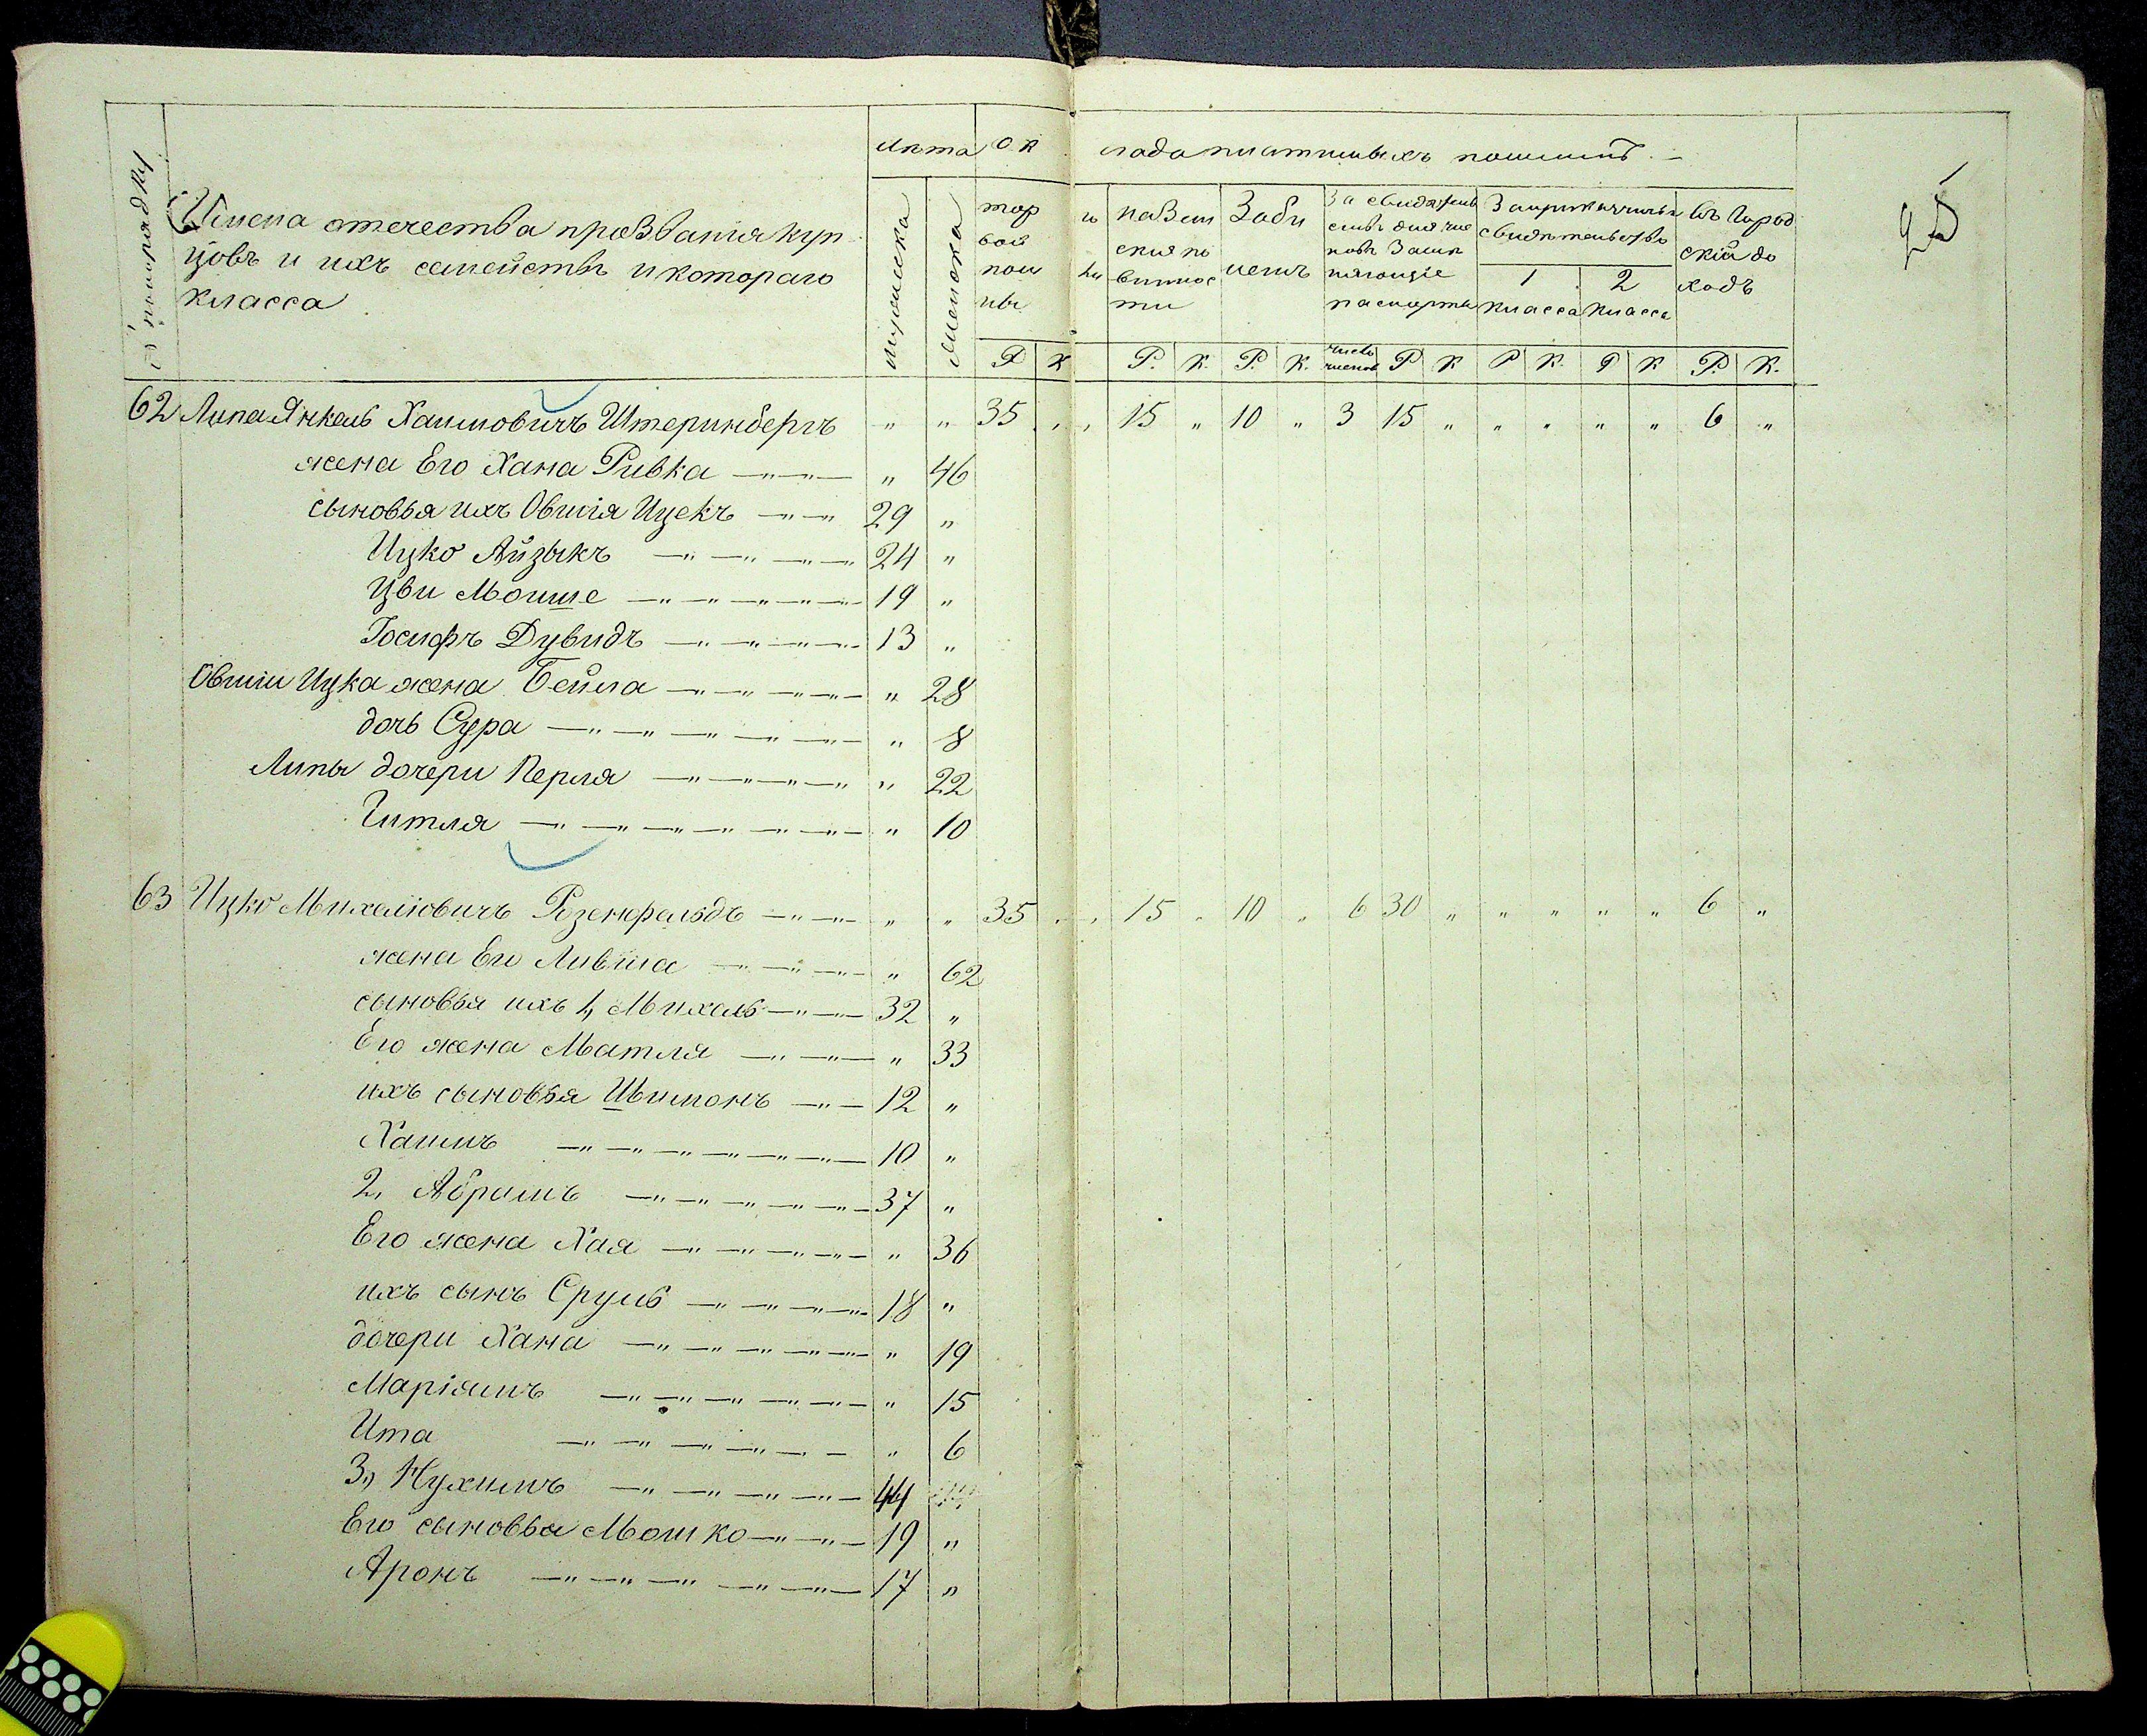 № по порядку
Имена отечества прозвания куп
цовъ и ихъ семействъ и котораго
класса
Лѣта
мужеска
женска
Окладо платимыхъ пошлинъ
торго
вой
пош
ны
Р К
на Зем
скія по
виннос
ти
Р. К.
За би
летъ
Р. К.
За свидѣтель
замѣ
няющіе
паспорты
число членов Р К
За прикащичьи
свидѣтельство
1 2
класса класса
Р К. Р К
въ Город
скій до
ходъ
Р. К.
25
62 Липа Янкель Хаимовичъ Штеринбергъ " " 35 " 15 " 10 " 3 15 " " " " " 6 "
жена Его Хана Ривка " 46
сыновья ихъ Овшія Ицекъ 29 "
Ицко Айзыкъ 24 "
Цви Мошше 19 "
Іосифъ Дувидъ 13 "
Овшіи Ицка жена Бейла " 28
дочь Сура " 8
Липы дочери Перля " 22
Гитля " 10
63 Ицко Михелювичъ Розенфельдъ " " 35 " 15 " 10 " 6 30 " " " " " 6 "
жена Его Ливша " 62
сыновья ихъ 1, Михель 32 "
Его жена Матля " 33
ихъ сыновья Шимонъ 12 "
Хаимъ 10 "
2, Абрамъ 37 "
Его жена Хая " 36
ихъ сынъ Сруль 18 "
дочери Хана " 19
Маріямъ " 15
Ита " 6
3, Нухимъ 44
Его сыновья Мошко 19 "
Аронъ 17 "